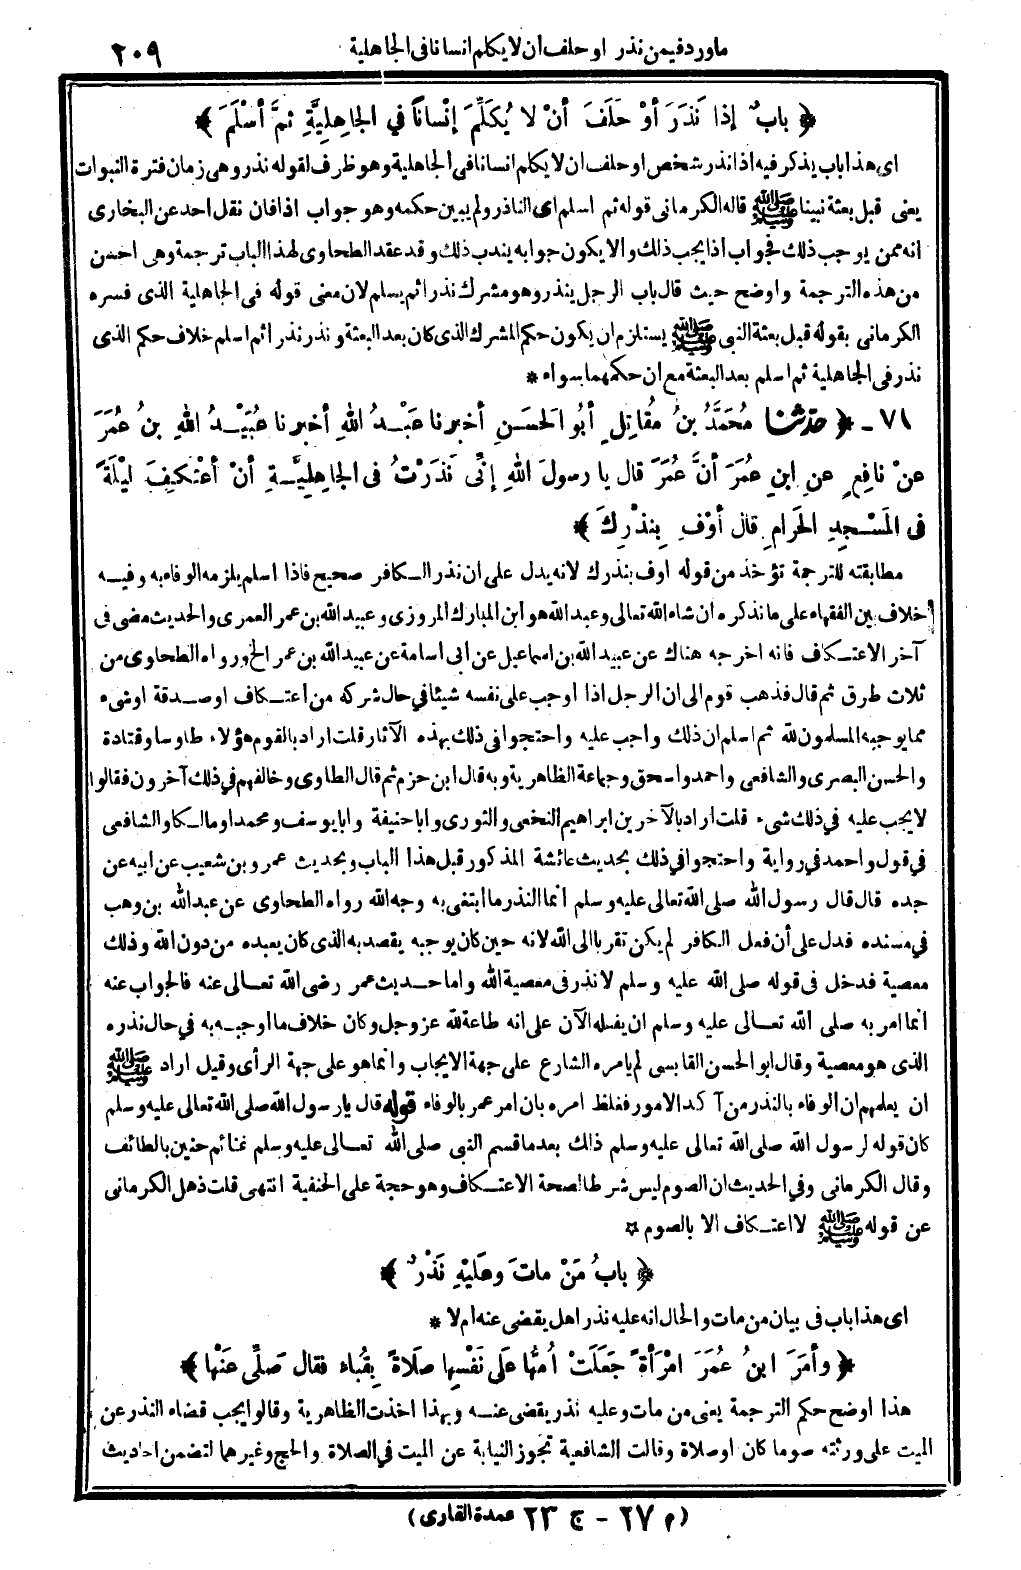 ما ورد فيمن نذر او حلف ان لا يكلم انسانا فى الجاهلية ٢٠٩
﴿ بابٌ إذا نَذَرَ أوْ حَلَفَ أنْ لا يُكَلِّمَ إنْساناً في الجاهِلِيَّةِ ثمَّ أسْلَمَ ﴾
اى هذا باب يذكر فيه اذا نذر شخص او حلف ان لا يكلم انسانا فى الجاهلية وهو ظرف لقوله نذر وهى زمان فترة النبوات
يعنى قبل بعثة نبينا ﷺ قاله الكرمانى قوله ثم اسلم اى الناذر ولم يبين حكمه وهو جواب اذا فان نقل احد عن البخارى
انه ممن يوجب ذلك فجواب اذا يجب ذلك والا يكون جوابه يندب ذلك وقد عقد الطحاوى لهذا الباب ترجمة وهى احسن
من هذه الترجمة واوضح حيث قال باب الرجل ينذر وهو مشرك نذرا ثم يسلم لان معنى قوله فى الجاهلية الذى فسره
الكرمانى بقوله قبل بعثة النبى ﷺ يستلزم ان يكون حكم المشرك الذى كان بعد البعثة ونذر نذرا ثم اسلم خلاف حكم الذى
نذر فى الجاهلية ثم اسلم بعد البعثة مع ان حكمهما سواء *
٧١ - ﴿ حدثنا مُحَمَّدُ بنُ مُقاتِلٍ أبُو الحَسَنِ أخبرنا عَبْدُ اللهِ أخبرنا عُبَيْدُ اللهِ بنُ عُمَرَ
عنْ نافِعٍ عنِ ابنِ عُمَرَ أنَّ عُمَرَ قال يا رسولَ اللهِ إنِّى نَذَرْتُ فى الجاهِلِيَّةِ أنْ أعْتَكِفَ لَيْلَةً
فى المَسْجِدِ الحَرامِ قال أوْفِ بِنَذْرِكَ ﴾
مطابقته للترجمة تؤخذ من قوله اوف بنذرك لانه يدل على ان نذر الكافر صحيح فاذا اسلم يلزمه الوفاء به وفيه
خلاف بين الفقهاء على ما نذكره ان شاء الله تعالى وعبد الله هو ابن المبارك المروزى وعبيد الله بن عمر العمرى والحديث مضى فى
آخر الاعتكاف فانه اخرجه هناك عن عبيد الله بن اسماعيل عن أبى أسامة عن عبيد الله بن عمر الخ ورواه الطحاوى من
ثلاث طرق ثم قال فذهب قوم الى ان الرجل اذا اوجب على نفسه شيئا في حال شركه من اعتكاف او صدقة او شىء
مما يوجبه المسلمون لله ثم اسلم ان ذلك واجب عليه واحتجوا فى ذلك بهذه الآثار قلت اراد بالقوم هؤلاء طاوسا وقتادة
والحسن البصرى والشافعى واحمد واسحق وجماعة الظاهرية وبه قال ابن حزم ثم قال الطاوى وخالفهم في ذلك آخرون فقالوا
لا يجب عليه في ذلك شىء قلت اراد بالآخرين ابراهيم النخعى والثورى وابا حنيفة وابا يوسف ومحمدا ومالكا والشافعى
في قول واحمد في رواية واحتجوا في ذلك بحديث عائشة المذكور قبل هذا الباب وبحديث عمرو بن شعيب عن ابيه عن
جده قال قال رسول الله صلى الله تعالى عليه وسلم انما النذر ما ابتغى به وجه الله رواه الطحاوى عن عبد الله بن وهب
في مسنده فدل على أن فعل الكافر لم يكن تقربا الى الله لانه حين كان يوجبه يقصد به الذى كان يعبده من دون الله وذلك
معصية فدخل فى قوله صلى الله عليه وسلم لا نذر فى معصية الله واما حديث عمر رضى الله تعالى عنه فالجواب عنه
انما امر به صلى الله تعالى عليه وسلم ان يفعله الآن على انه طاعة لله عز وجل وكان خلاف ما اوجبه به في حال نذره
الذى هو معصية وقال ابو الحسن القابسى لم يامره الشارع على جهة الايجاب وانما هو على جهة الرأى وقيل اراد ﷺ
ان يعلمهم ان الوفاء بالنذر من آكد الامور فغلظ امره بان امر عمر بالوفاء قوله قال يا رسول الله صلى الله تعالى عليه وسلم
كان قوله لرسول الله صلى الله تعالى عليه وسلم ذلك بعد ما قسم النبى صلى الله تعالى عليه وسلم غنائم حنين بالطائف
وقال الكرمانى وفي الحديث ان الصوم ليس شرطا لصحة الاعتكاف وهو حجة على الحنفية انتهى قلت ذهل الكرمانى
عن قوله ﷺ لا اعتكاف الا بالصوم ☆
﴿ بابُ مَنْ ماتَ وعَلَيْهِ نَذْرٌ ﴾
اى هذا باب فى بيان من مات والحال انه عليه نذر هل يقضى عنه ام لا *
﴿ وأمَرَ ابنُ عُمَرَ امْرَأةً جَعَلَتْ أُمُّها عَلَى نَفْسِها صَلاةً بِقُباءٍ فقال صَلِّى عَنْها ﴾
هذا اوضح حكم الترجمة يعنى من مات وعليه نذر يقضى عنه وبهذا اخذت الظاهرية وقالوا يجب قضاء النذر عن
الميت على ورثته صوما كان او صلاة وقالت الشافعية تجوز النيابة عن الميت في الصلاة والحج وغيرهما لتضمن احاديث
(م ٢٧ - ج ٢٣ عمدة القارى)